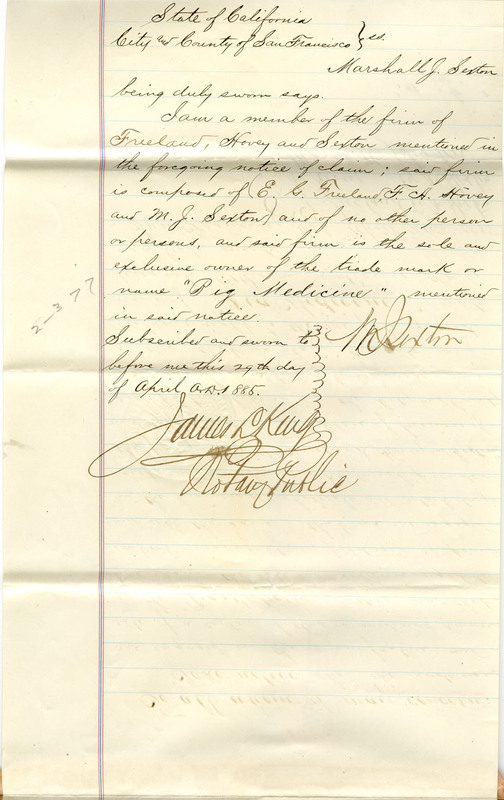 State of California
City and County of San Francisco } ss.
Marshall J. Sexton
being duly sworn says.
I am a member of the firm of
Freeland, Hovey and Sexton mentioned in
the foregoing notice of claim; said firm
is composed of (E. G. Freeland, F. A. Hovey
and M. J. Sexton) and of no other person
or persons, and said firm is the sole and
exclusive owner of the trade mark or
name "Pig Medicine" mentioned
in said notice.
Subscribed and sworn to
before me this 29th day
of April A.D. 1885.
M J Sexton
James L King
Notary Public
2-377